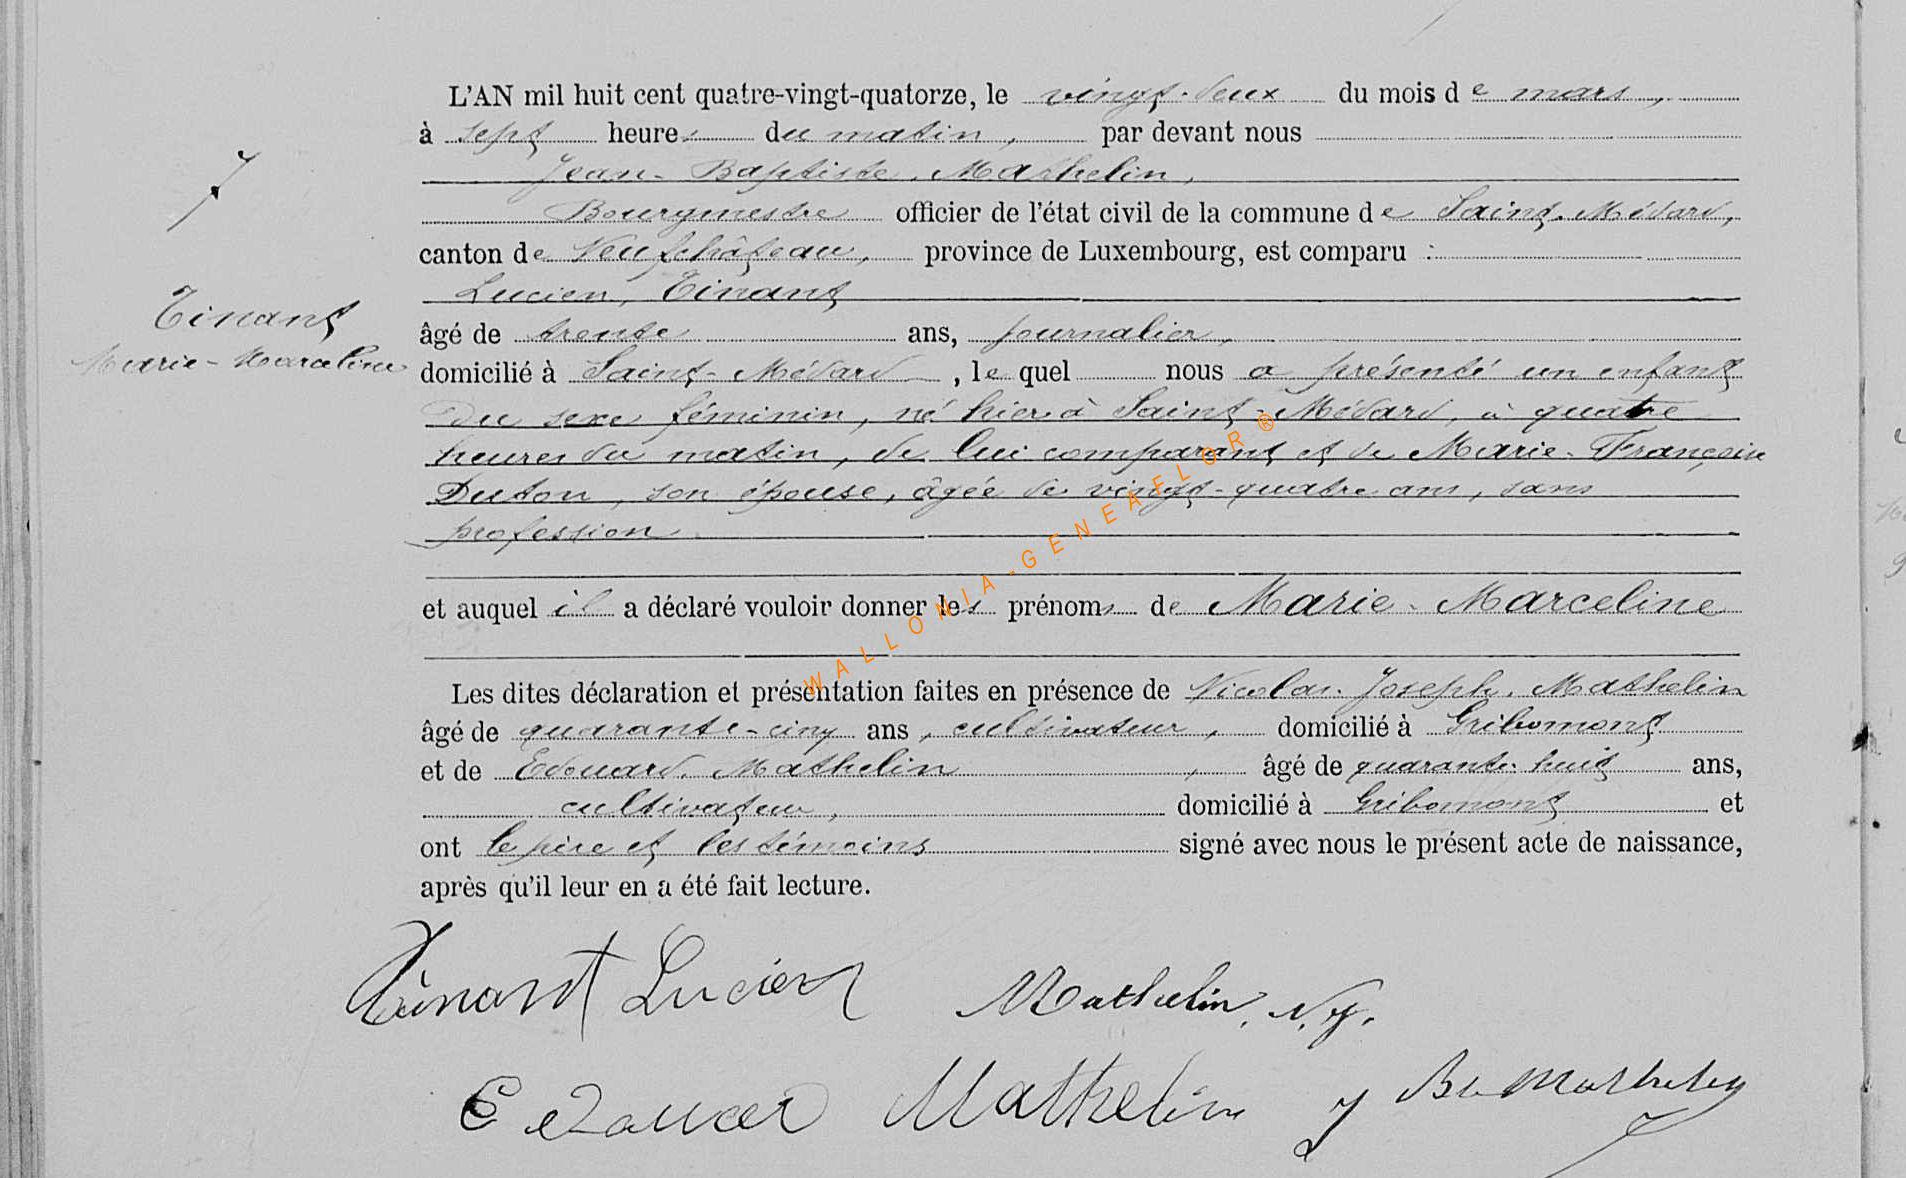 L'AN mil huit cent quatre-vingt-quatorze, le vingt-deux du mois de mars,
à sept heures du matin, par devant nous
Jean-Baptiste Mathelin,
Bourgmestre officier de l'état civil de la commune de Saint-Médard,
canton de Neufchâteau, province de Luxembourg, est comparu :
Lucien Tinant
âgé de trente ans, journalier,
domicilié à Saint-Médard, le quel nous a présenté un enfant
du sexe féminin, né hier à Saint-Médard, à quatre
heures du matin, de lui comparant et de Marie-Françoise
Duton, son épouse, âgée de vingt-quatre ans, sans
profession
et auquel il a déclaré vouloir donner les prénoms de Marie-Marceline
Les dites déclaration et présentation faites en présence de Nicolas-Joseph Mathelin
âgé de quarante-cinq ans, cultivateur, domicilié à Gribomont
et de Edouard Mathelin, âgé de quarante-huit ans,
cultivateur, domicilié à Gribomont et
ont le père et les témoins signé avec nous le présent acte de naissance,
après qu'il leur en a été fait lecture.
7
Tinant
Marie-Marceline
Tinant Lucien Mathelin, N. J.
Edouard Mathelin J Bte Mathelin
WALLONIA-GENEAFLOR®